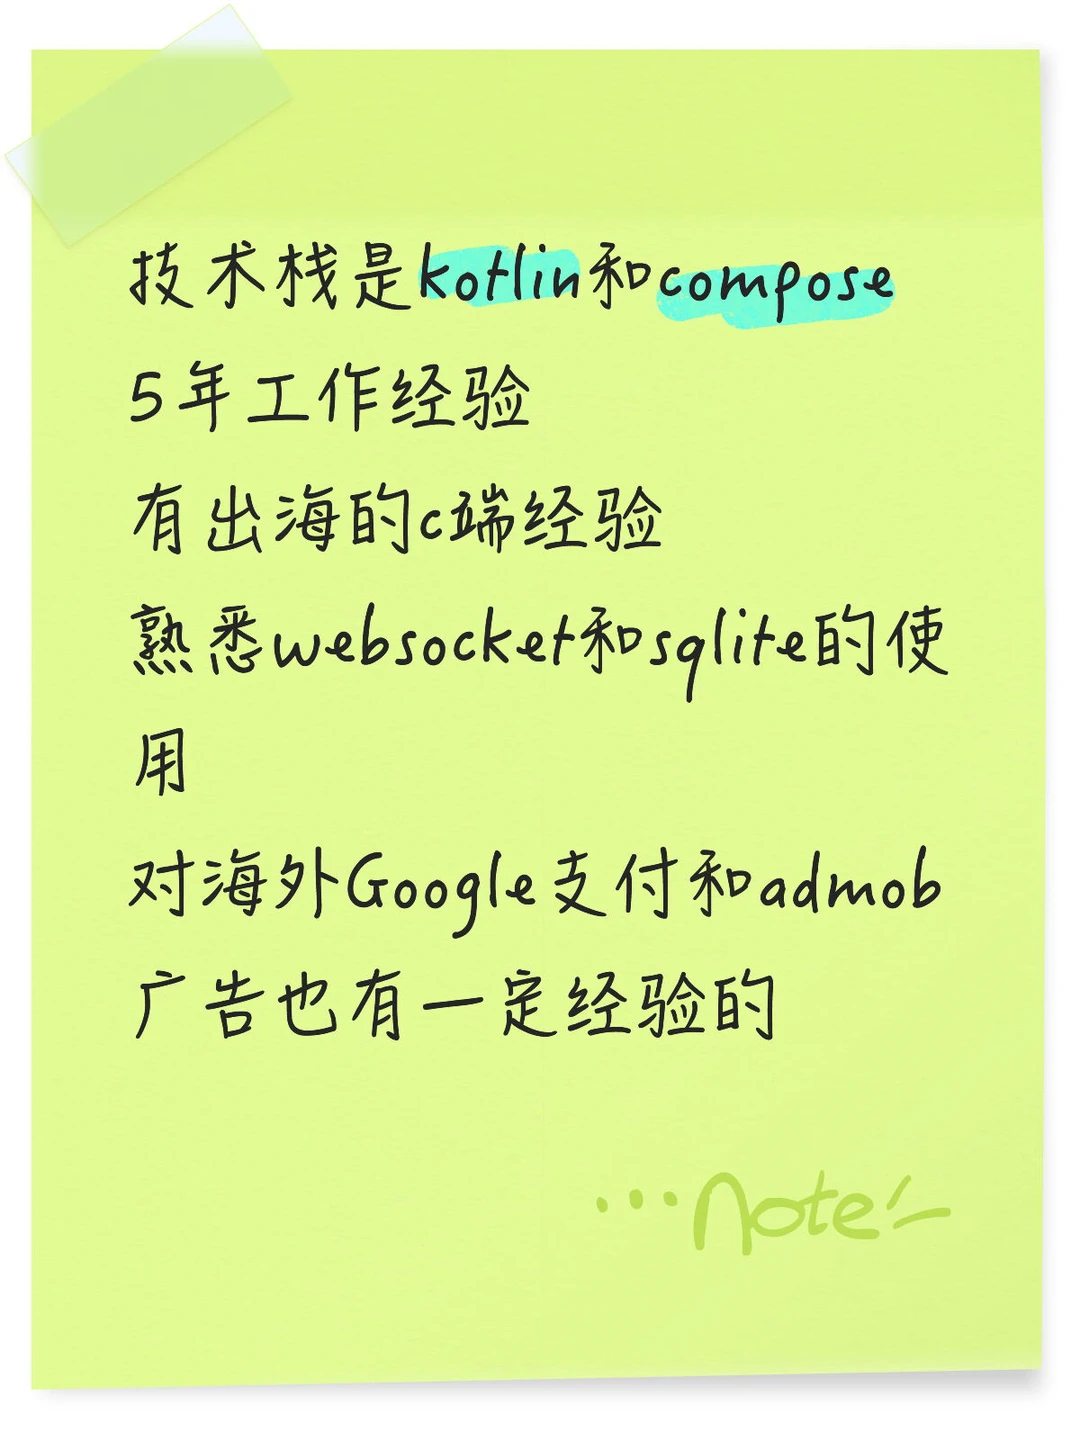 技术栈是kotlin和compose
5年工作经验
有出海的c端经验
熟悉websocket和sqlite的使
用
对海外Google支付和admob
广告也有一定经验的
...note